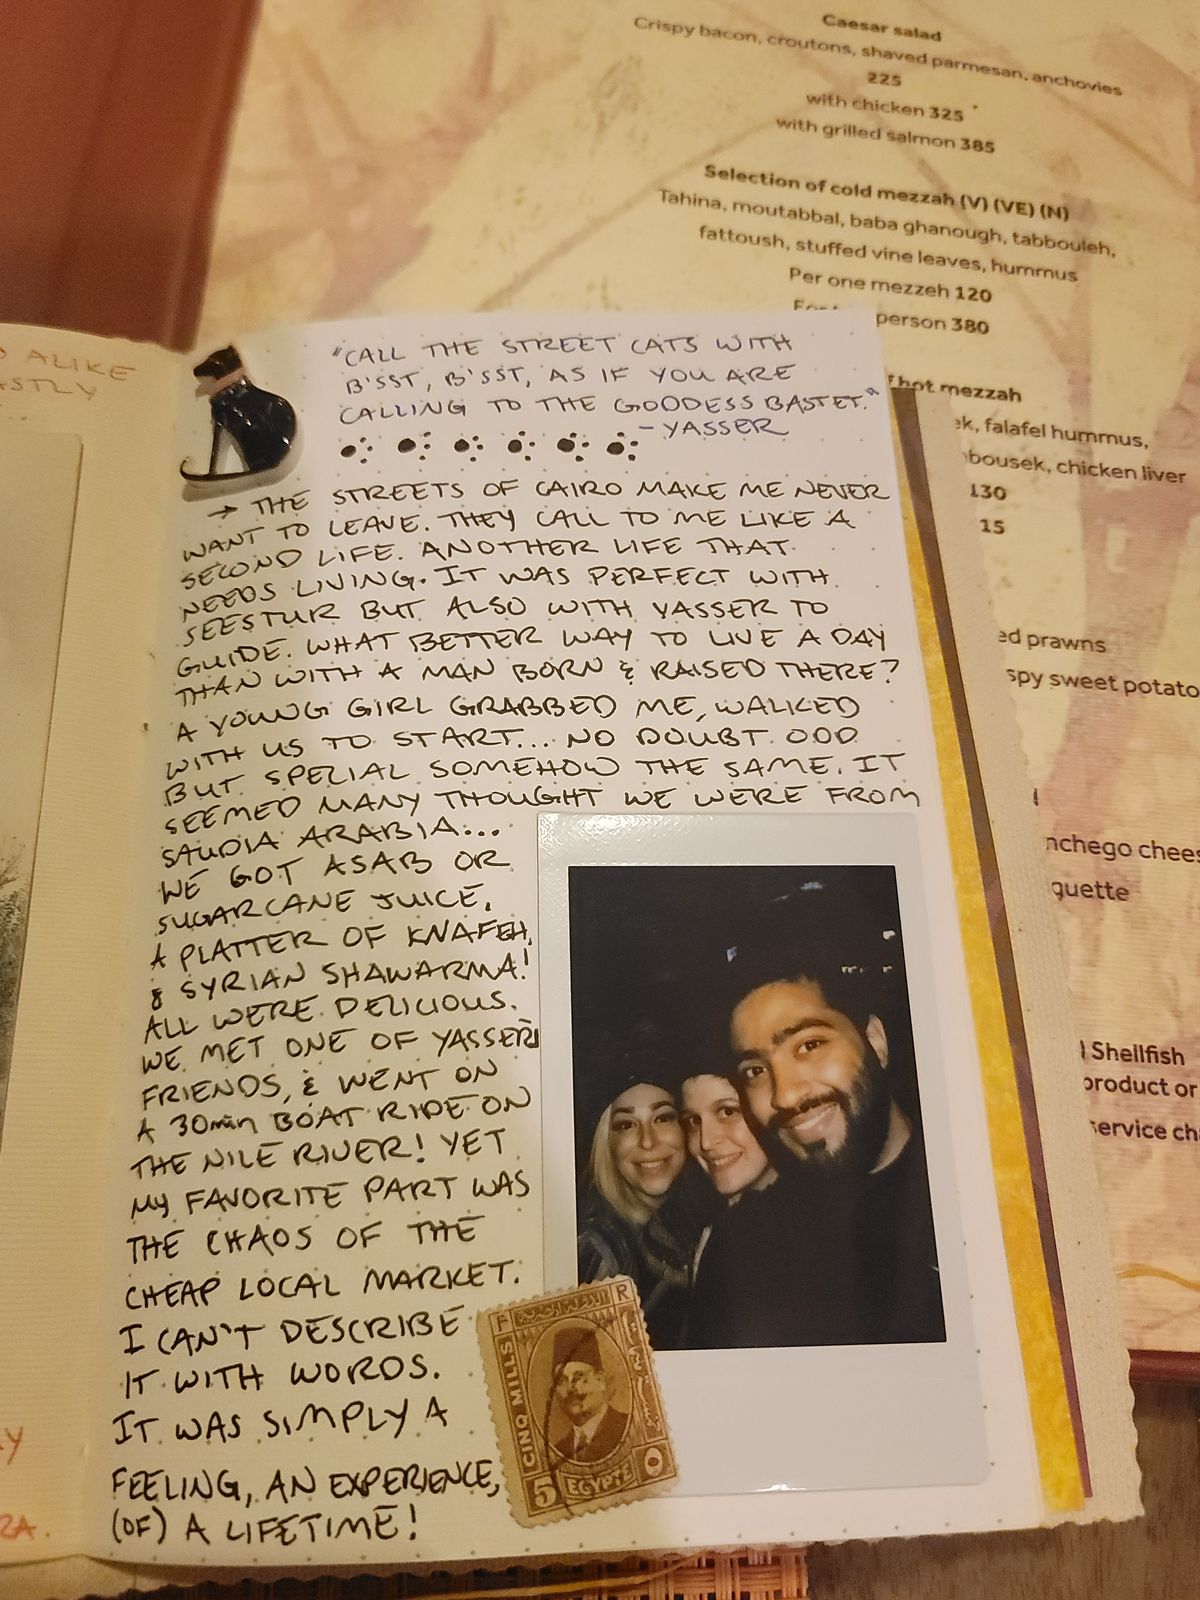 Caesar salad
Crispy bacon, croutons, shaved parmesan, anchovies
225
with chicken 325
with grilled salmon 385
Selection of cold mezzah (V) (VE) (N)
Tahina, moutabbal, baba ghanough, tabbouleh,
fattoush, stuffed vine leaves, hummus
Per one mezzeh 120
person 380
hot mezzah
falafel hummus,
chicken liver
130
15
prawns
sweet potato
Shellfish
product or
service
ALIKE
"CALL THE STREET CATS WITH
B'SST, B'SST, AS IF YOU ARE
CALLING TO THE GODDESS BASTET."
- YASSER
→ THE STREETS OF CAIRO MAKE ME NEVER
WANT TO LEAVE. THEY CALL TO ME LIKE A
SECOND LIFE. ANOTHER LIFE THAT
NEEDS LIVING. IT WAS PERFECT WITH
SEESTUR BUT ALSO WITH YASSER TO
GUIDE. WHAT BETTER WAY TO LIVE A DAY
THAN WITH A MAN BORN & RAISED THERE?
A YOUNG GIRL GRABBED ME, WALKED
WITH US TO START... NO DOUBT ODD
BUT SPECIAL SOMEHOW THE SAME. IT
SEEMED MANY THOUGHT WE WERE FROM
SAUDIA ARABIA...
WE GOT ASAB OR
SUGARCANE JUICE,
A PLATTER OF KNAFEH,
& SYRIAN SHAWARMA!
ALL WERE DELICIOUS.
WE MET ONE OF YASSER'S
FRIENDS, & WENT ON
A 30min BOAT RIDE ON
THE NILE RIVER! YET
MY FAVORITE PART WAS
THE CHAOS OF THE
CHEAP LOCAL MARKET.
I CAN'T DESCRIBE
IT WITH WORDS.
IT WAS SIMPLY A
FEELING, AN EXPERIENCE,
(OF) A LIFETIME!
F R
CINQ MILLS
5 EGYPTE